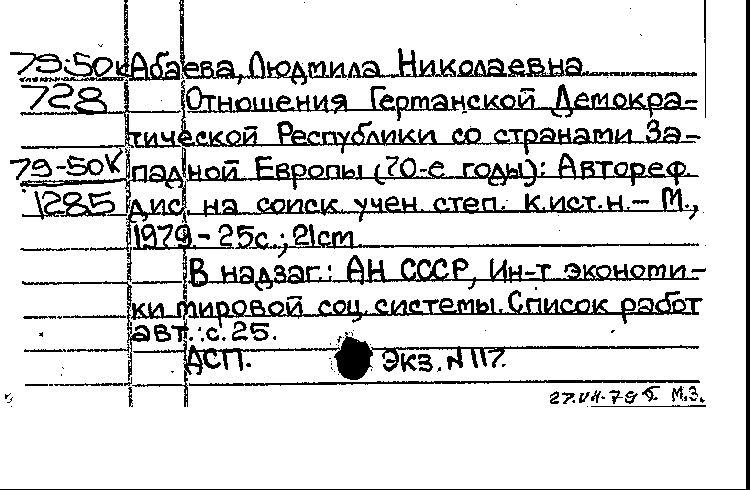 79-50к Абаева, Людмила Николаевна
728 Отношения Германской Демокра-
тической Республики со странами За-
79-50К падной Европы (70-е годы): Автореф.
1285 дис. на соиск. учен. степ. к.ист.н.- М.,
1979.- 25с.; 21см
В надзаг.: АН СССР, Ин-т экономи-
ки мировой соц. системы. Список работ
авт.: с. 25.
ДСП. Экз. N 117.
М.З.